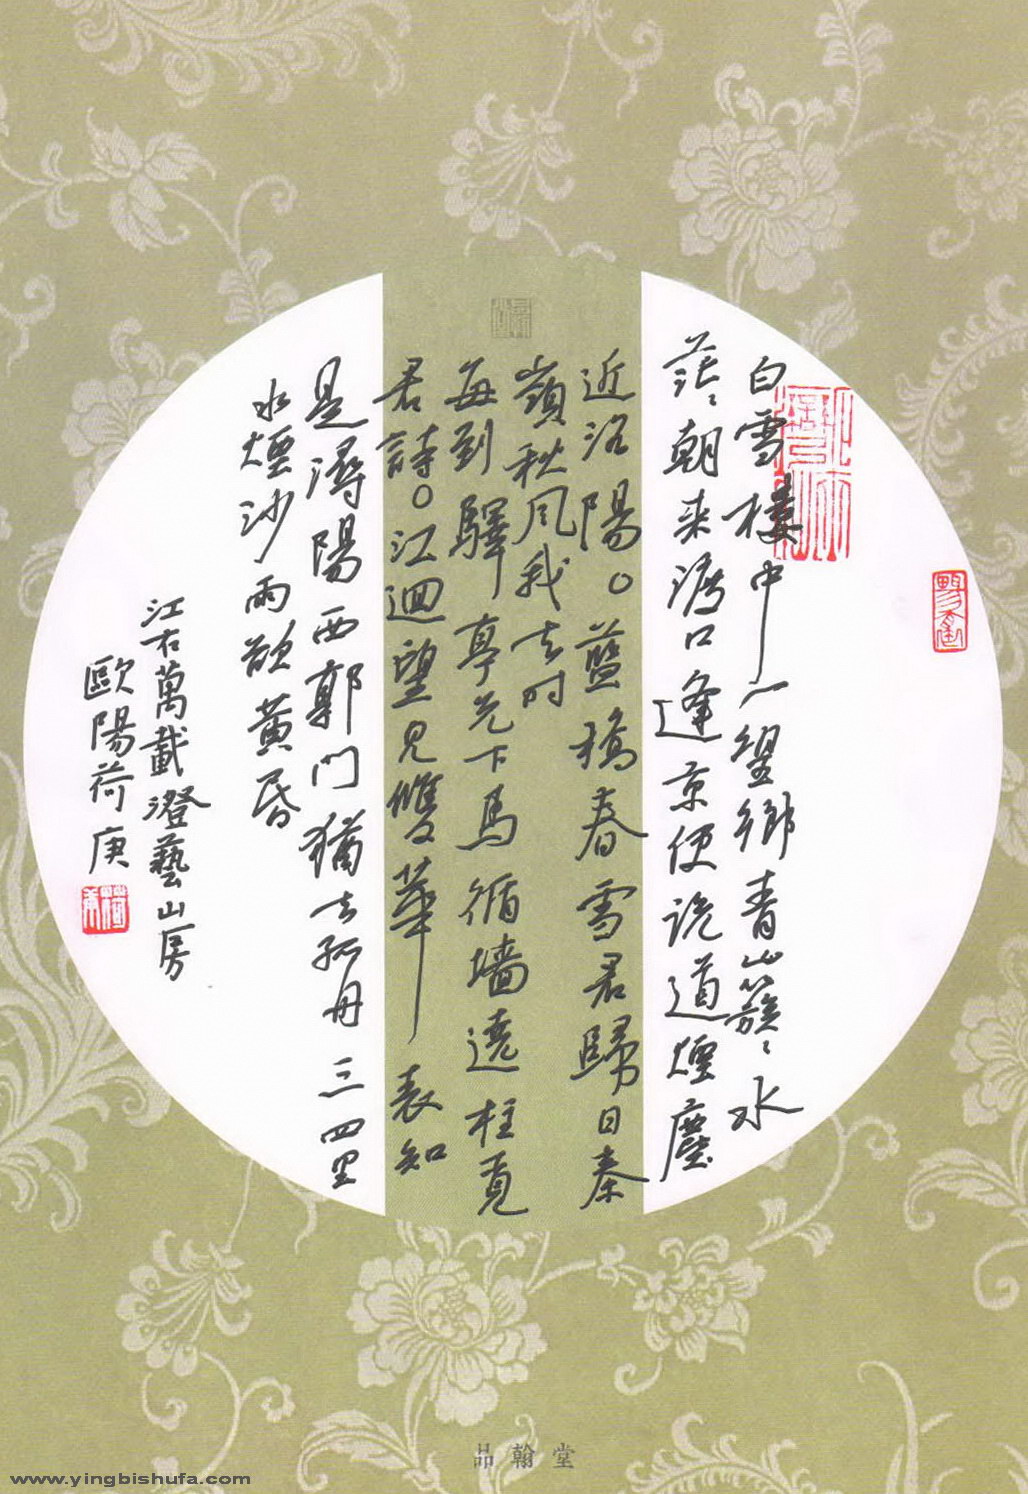 白雪樓中一望鄉青山簇〻水
茫〻朝来渡口逢京使说道煙塵
近洛陽。藍橋春雪君歸日秦
嶺秋风我去时
每到驛亭先下馬循墙遶柱覓
君詩。江迴望見雙華表知
是潯陽西郭门猶去孤舟三四里
水煙沙雨欲黄昏
江右萬載澄藝山房
歐陽荷庚
品翰堂
www.yingbishufa.com